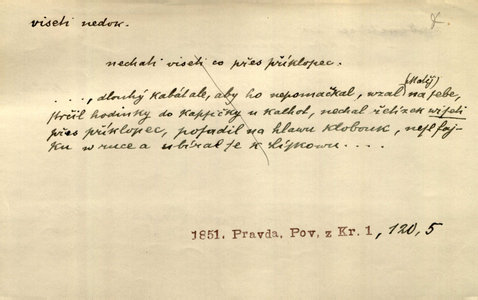 viseti nedok.
nechati viseti co přes příklopec.
(Matěj)
. . . ., dlouhý kabát ale, aby ho nepomačkal, wzal na sebe,
strčil hodinky do kapsičky u kalhot, nechal řetízek wiseti
přes příklopec, posadil na hlawu klobouk, nesl faj-
ku w ruce a ubíral se k Lipkowu. . . .
1851. Pravda, Pov. z Kr. 1, 120, 5